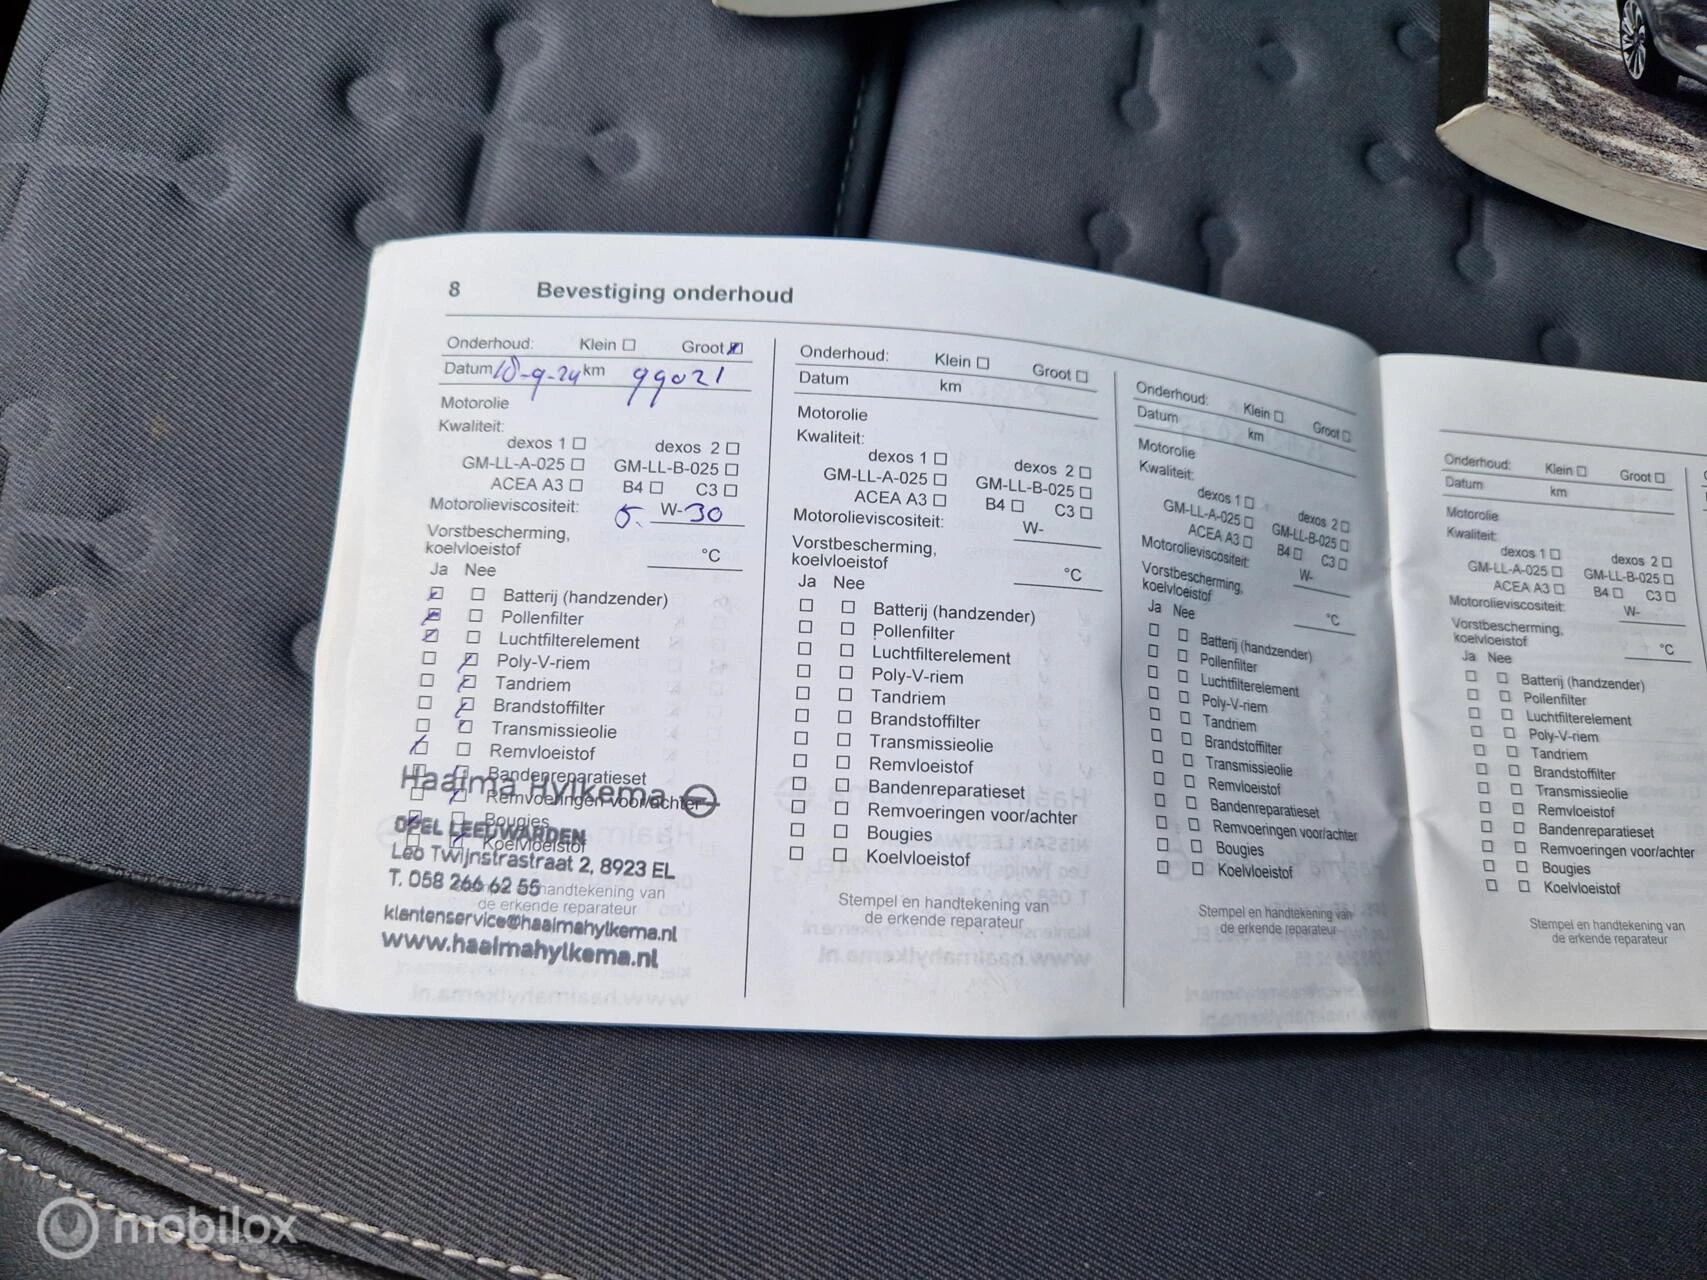 8 Bevestiging onderhoud
Onderhoud: Klein Groot
Datum 18-9-24 km 99021
Motorolie
Kwaliteit:
dexos 1 dexos 2
GM-LL-A-025 GM-LL-B-025
ACEA A3 B4 C3
Motorolieviscositeit: 5. W- 30
Vorstbescherming,
koelvloeistof °C
Ja Nee
Batterij (handzender)
Pollenfilter
Luchtfilterelement
Poly-V-riem
Tandriem
Brandstoffilter
Transmissieolie
Remvloeistof
Bandenreparatieset
Remvoeringen voor/achter
Bougies
Koelvloeistof
Haaima Hylkema
OPEL LEEUWARDEN
Leo Twijnstrastraat 2, 8923 EL
T. 058 266 62 55
handtekening van
de erkende reparateur
klantenservice@haaimahylkema.nl
www.haaimahylkema.nl
Onderhoud: Klein Groot
Datum km
Motorolie
Kwaliteit:
dexos 1 dexos 2
GM-LL-A-025 GM-LL-B-025
ACEA A3 B4 C3
Motorolieviscositeit: W-
Vorstbescherming,
koelvloeistof °C
Ja Nee
Batterij (handzender)
Pollenfilter
Luchtfilterelement
Poly-V-riem
Tandriem
Brandstoffilter
Transmissieolie
Remvloeistof
Bandenreparatieset
Remvoeringen voor/achter
Bougies
Koelvloeistof
Stempel en handtekening van
de erkende reparateur
Onderhoud: Klein Groot
Datum km
Motorolie
Kwaliteit:
dexos 1 dexos 2
GM-LL-A-025 GM-LL-B-025
ACEA A3 B4 C3
Motorolieviscositeit: W-
Vorstbescherming,
koelvloeistof °C
Ja Nee
Batterij (handzender)
Pollenfilter
Luchtfilterelement
Poly-V-riem
Tandriem
Brandstoffilter
Transmissieolie
Remvloeistof
Bandenreparatieset
Remvoeringen voor/achter
Bougies
Koelvloeistof
Stempel en handtekening van
de erkende reparateur
Onderhoud: Klein Groot
Datum km
Motorolie
Kwaliteit:
dexos 1 dexos 2
GM-LL-A-025 GM-LL-B-025
ACEA A3 B4 C3
Motorolieviscositeit: W-
Vorstbescherming,
koelvloeistof °C
Ja Nee
Batterij (handzender)
Pollenfilter
Luchtfilterelement
Poly-V-riem
Tandriem
Brandstoffilter
Transmissieolie
Remvloeistof
Bandenreparatieset
Remvoeringen voor/achter
Bougies
Koelvloeistof
Stempel en handtekening van
de erkende reparateur
mobilox